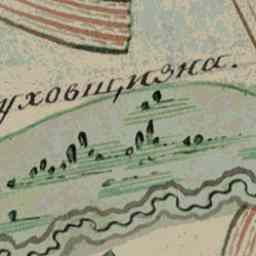 уховщизна.